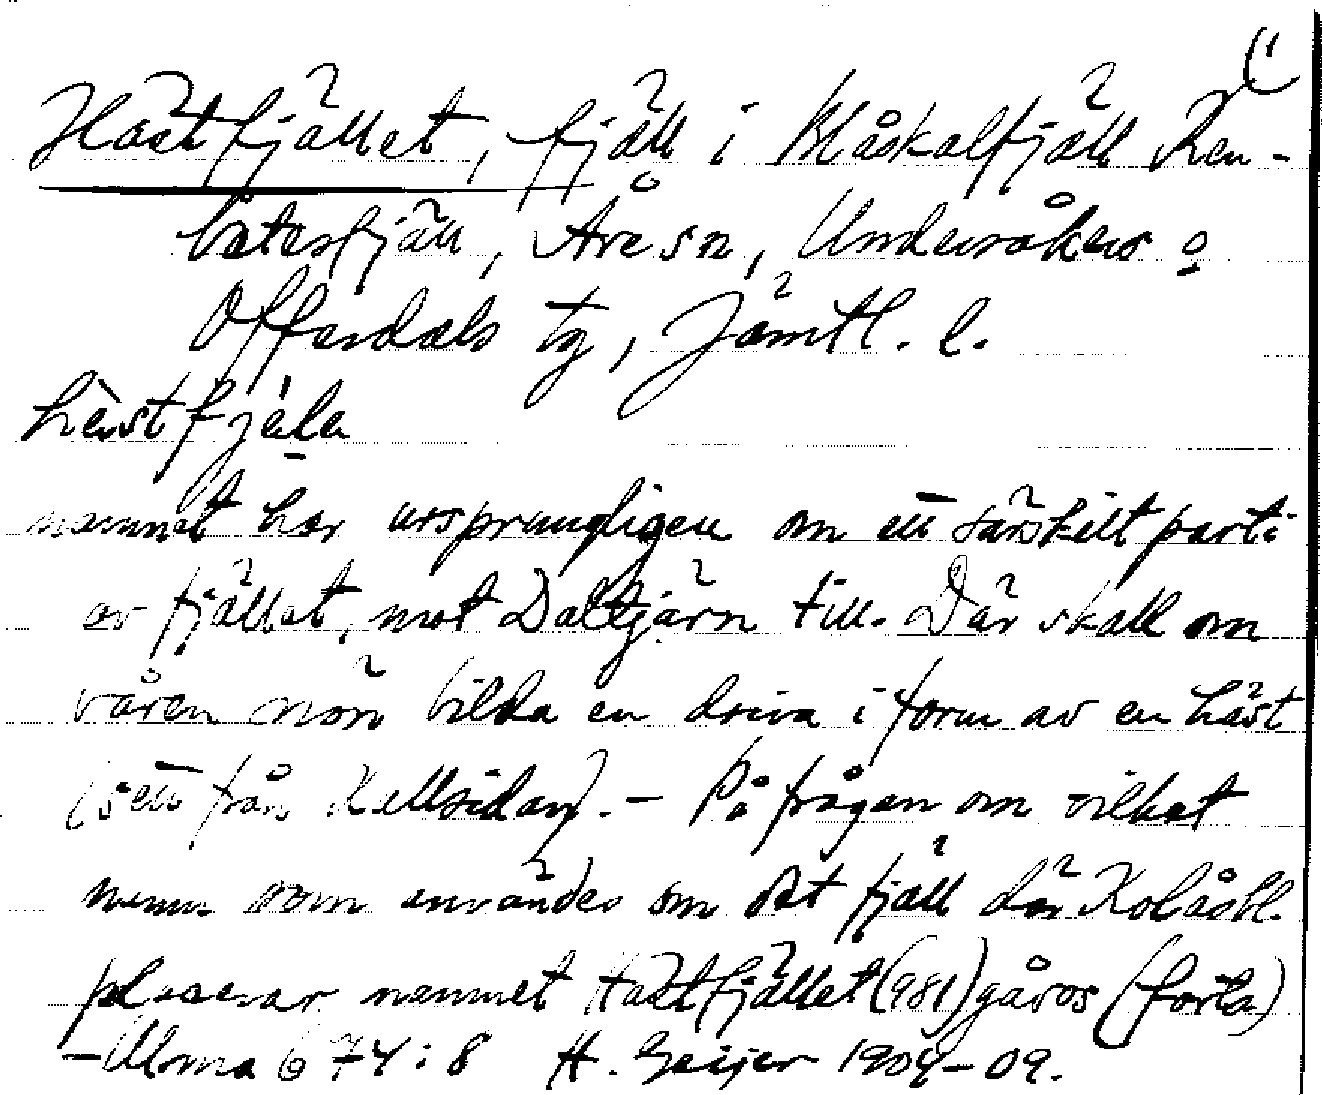 Hästfjället, fjäll i Blåskalfjäll Ren-
betesfjäll, Åre sn, Undersåkers o
Offerdals tg, Jämtl. l.
hèstfję̀la
namnet har ursprungligen om ett särskilt parti
av fjället, mot Daltjärn till. Där skall om
våren snön bilda en driva i form av en häst
(sett från Kallsidan). – På frågan om vilket
namn som användes om det fjäll där Kolåsbl.
placerar namnet Hästfjället (981) gåvos (forts)
– Ulma 674:8 H. Geijer 1904–09.